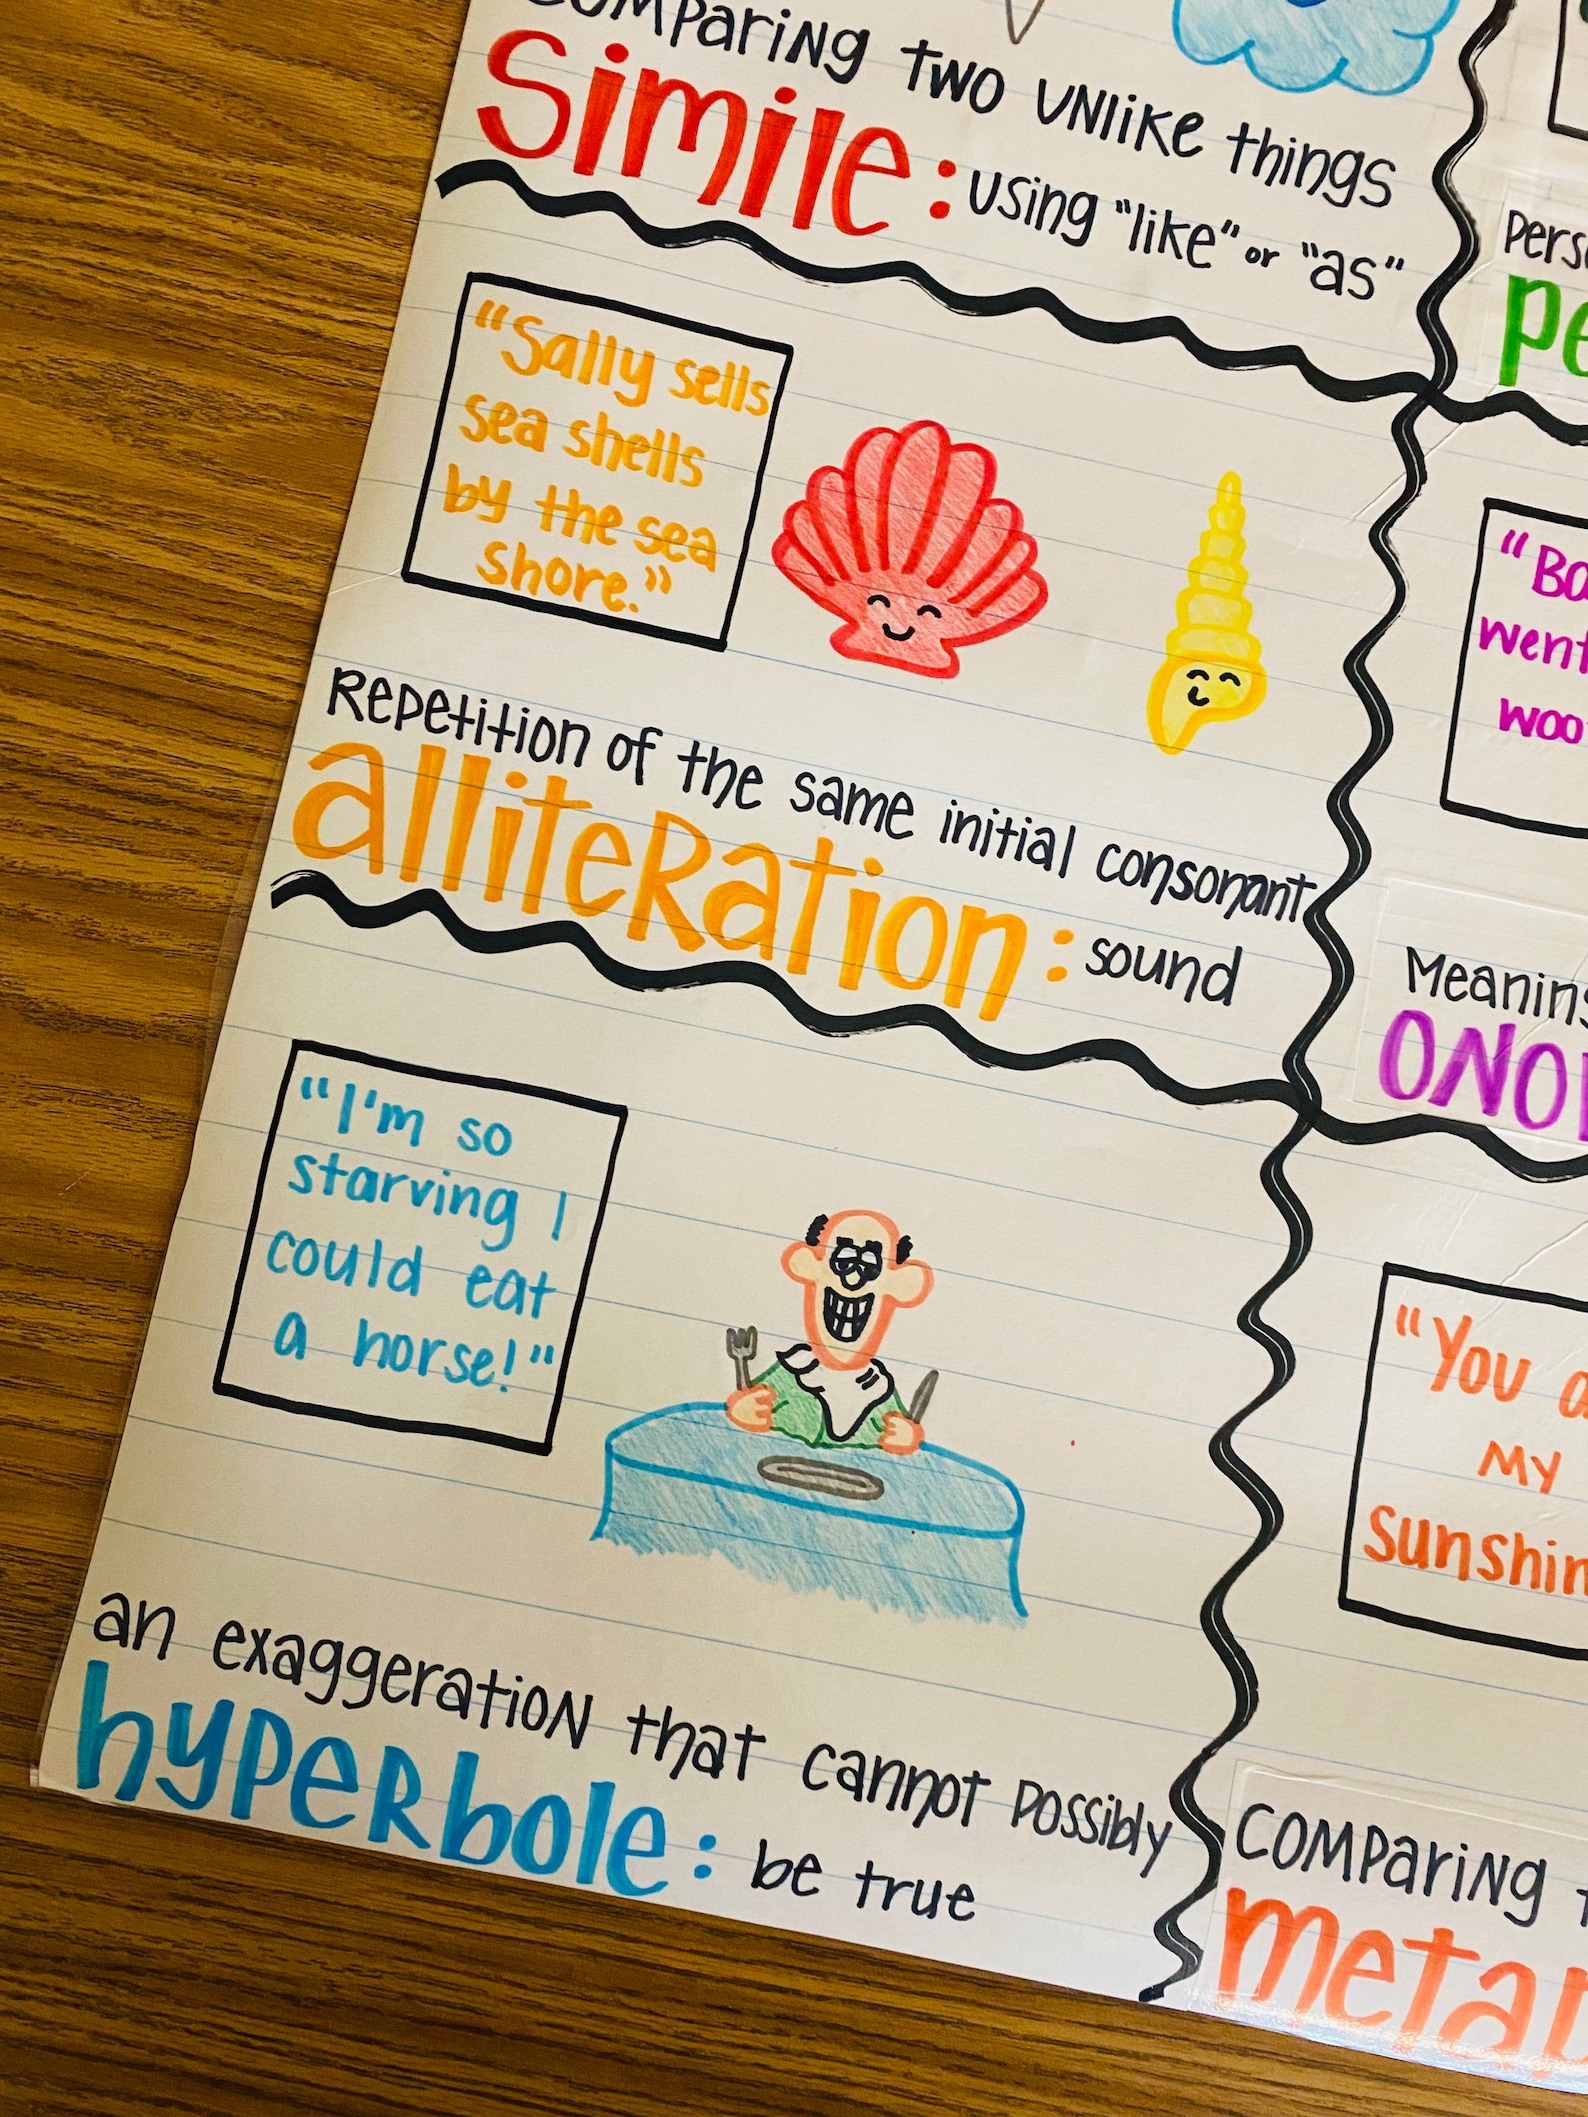 COMParing two unlike things
Simile: using "like" or "as"
"Sally sells
sea shells
by the sea
shore."
Repetition of the same initial consonant
alliteration: sound
"I'm so
starving I
could eat
a horse!"
an exaggeration that cannot possibly
hyperbole: be true
went
Meaning
"You
My
Comparing